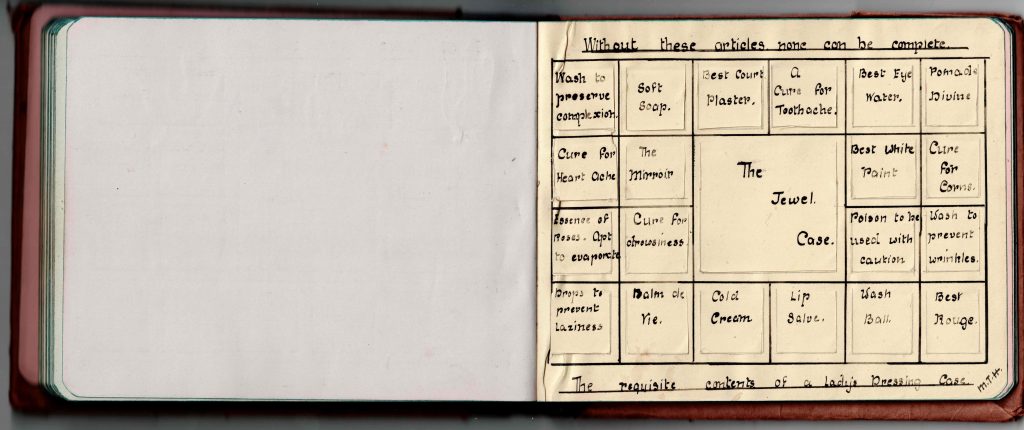 Without these articles none can be complete.
Wash to
preserve
complexion.
Soft
Soap.
Best Court
Plaster.
A
Cure for
Toothache.
Best Eye
Water.
Pomade
Divine
Cure for
Heart Ache
The
Mirroir
The
Jewel
Case.
Best White
Paint
Cure
for
Corns.
Essence of
Roses. Apt
to evaporate
Cure for
drowsiness
Poison to be
used with
caution
Wash to
prevent
wrinkles.
Drops to
prevent
Laziness
Balm de
Vie.
Cold
Cream
Lip
Salve.
Wash
Ball.
Best
Rouge.
The requisite contents of a lady's Dressing Case.
M.T.H.